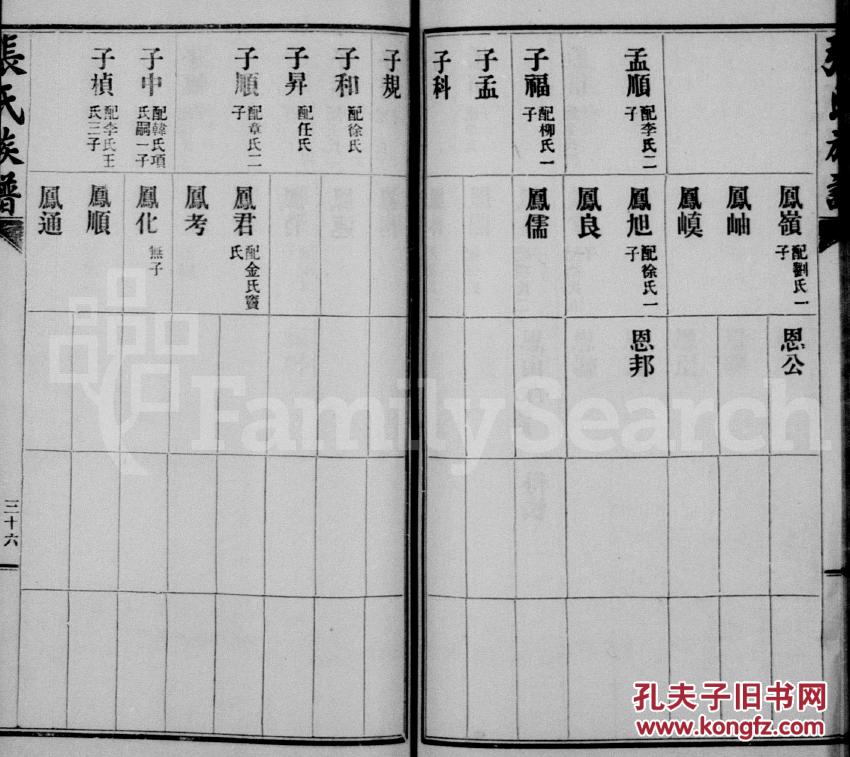 鳳嶺 配劉氏一子 恩公
鳳岫
鳳
孟順 配李氏二子 鳳旭 配徐氏一子 恩邦
鳳良
子福 配柳氏一子 鳳儒
子孟
子科
子規
子和 配徐氏
子昇 配任氏
子順 配章氏二子 鳳君 配金氏竇氏
鳳考
子中 配韓氏項氏嗣一子 鳳化 無子
子楨 配李氏王氏三子 鳳順
鳳通
張氏族譜 三十六
FamilySearch
孔夫子旧书网
www.kongfz.com